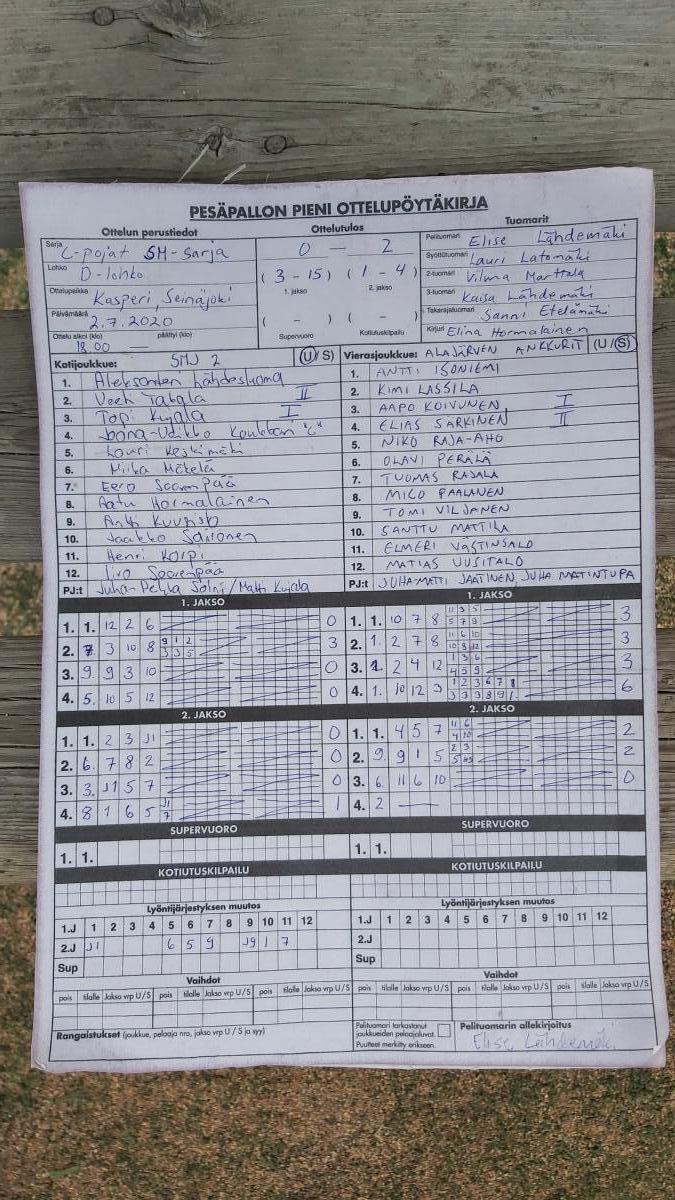 PESÄPALLON PIENI OTTELUPÖYTÄKIRJA
Ottelun perustiedot
Sarja C-pojat SM-sarja
Lohko D-lohko
Ottelupaikka Kasperi, Seinäjoki
Päivämäärä 2.7.2020
Ottelu alkoi (klo) 18.00 päättyi (klo)
Ottelutulos
0 — 2
( 3 - 15 ) ( 1 - 4 )
1. jakso 2. jakso
( - ) ( - )
Supervuoro Kotiutuskilpailu
Tuomarit
Pelituomari Elise Lähdemäki
Syöttötuomari Lauri Latomäki
2-tuomari Vilma Marttala
3-tuomari Kaisa Lähdemäki
Takarajatuomari Sanni Etelämäki
Kirjuri Elina Hormalainen
Kotijoukkue: SMJ 2 (U/S)
1. Aleksanteri Lähdesluoma
2. Veeti II
3. Topi Kujala I
4. "C"
5. Lauri Keskimäki
6. Miika Mäkelä
7. Eero Saarenpää
8. Aatu Hormalainen
9. Antti
10. Jaakko
11. Henri Korpi
12. Iiro Saarenpää
PJ:t Juha-Pekka / Matti Kujala
Vierasjoukkue: ALAJÄRVEN ANKKURIT (U/S)
1. ANTTI ISONIEMI
2. KIMI LASSILA
3. AAPO KOIVUNEN I
4. ELIAS SARKINEN II
5. NIKO RAJA-AHO
6. OLAVI PERÄLÄ
7. TUOMAS RAJALA
8. MICO PAALANEN
9. TOMI VILJANEN
10. SANTTU MATTILA
11. ELMERI VÄSTINSALO
12. MATIAS UUSITALO
PJ:t JUHA-MATTI JAATINEN, JUHA MATINTUPA
1. JAKSO
1. 1. 12 2 6 0
2. 7 3 10 8 9 1 2 3 3 5 3
3. 9 9 3 10 0
4. 5 10 5 12 0
2. JAKSO
1. 1. 2 3 J1 0
2. 6 7 8 2 0
3. 3 J1 5 7 0
4. 8 1 6 5 J1 7 1
SUPERVUORO
1. 1.
KOTIUTUSKILPAILU
1. JAKSO
1. 1. 10 7 8 11 3 5 5 7 9 3
2. 1. 2 7 8 11 6 10 10 3 12 3
3. 1. 2 4 12 1 3 6 4 5 9 3
4. 1. 10 12 3 1 2 3 6 7 8 3 3 3 8 9 1 6
2. JAKSO
1. 1. 4 5 7 11 6 4 10 2
2. 9. 9 1 5 2 3 2
3. 6. 11 6 10 0
4. 2 —
SUPERVUORO
1. 1.
KOTIUTUSKILPAILU
Lyöntijärjestyksen muutos
1.J 1 2 3 4 5 6 7 8 9 10 11 12
2.J J1 6 5 9 J9 1 7
Sup
Vaihdot
pois tilalle Jakso vrp U/S pois tilalle Jakso vrp U/S pois tilalle Jakso vrp U/S
Rangaistukset (joukkue, pelaaja nro, jakso vrp U / S ja syy)
Lyöntijärjestyksen muutos
1.J 1 2 3 4 5 6 7 8 9 10 11 12
2.J
Sup
Vaihdot
pois tilalle Jakso vrp U/S pois tilalle Jakso vrp U/S pois tilalle Jakso vrp U/S
Pelituomari tarkastanut
joukkueiden pelaajaluvat.
Puutteet merkitty erikseen.
Pelituomarin allekirjoitus
Elise Lähdemäki